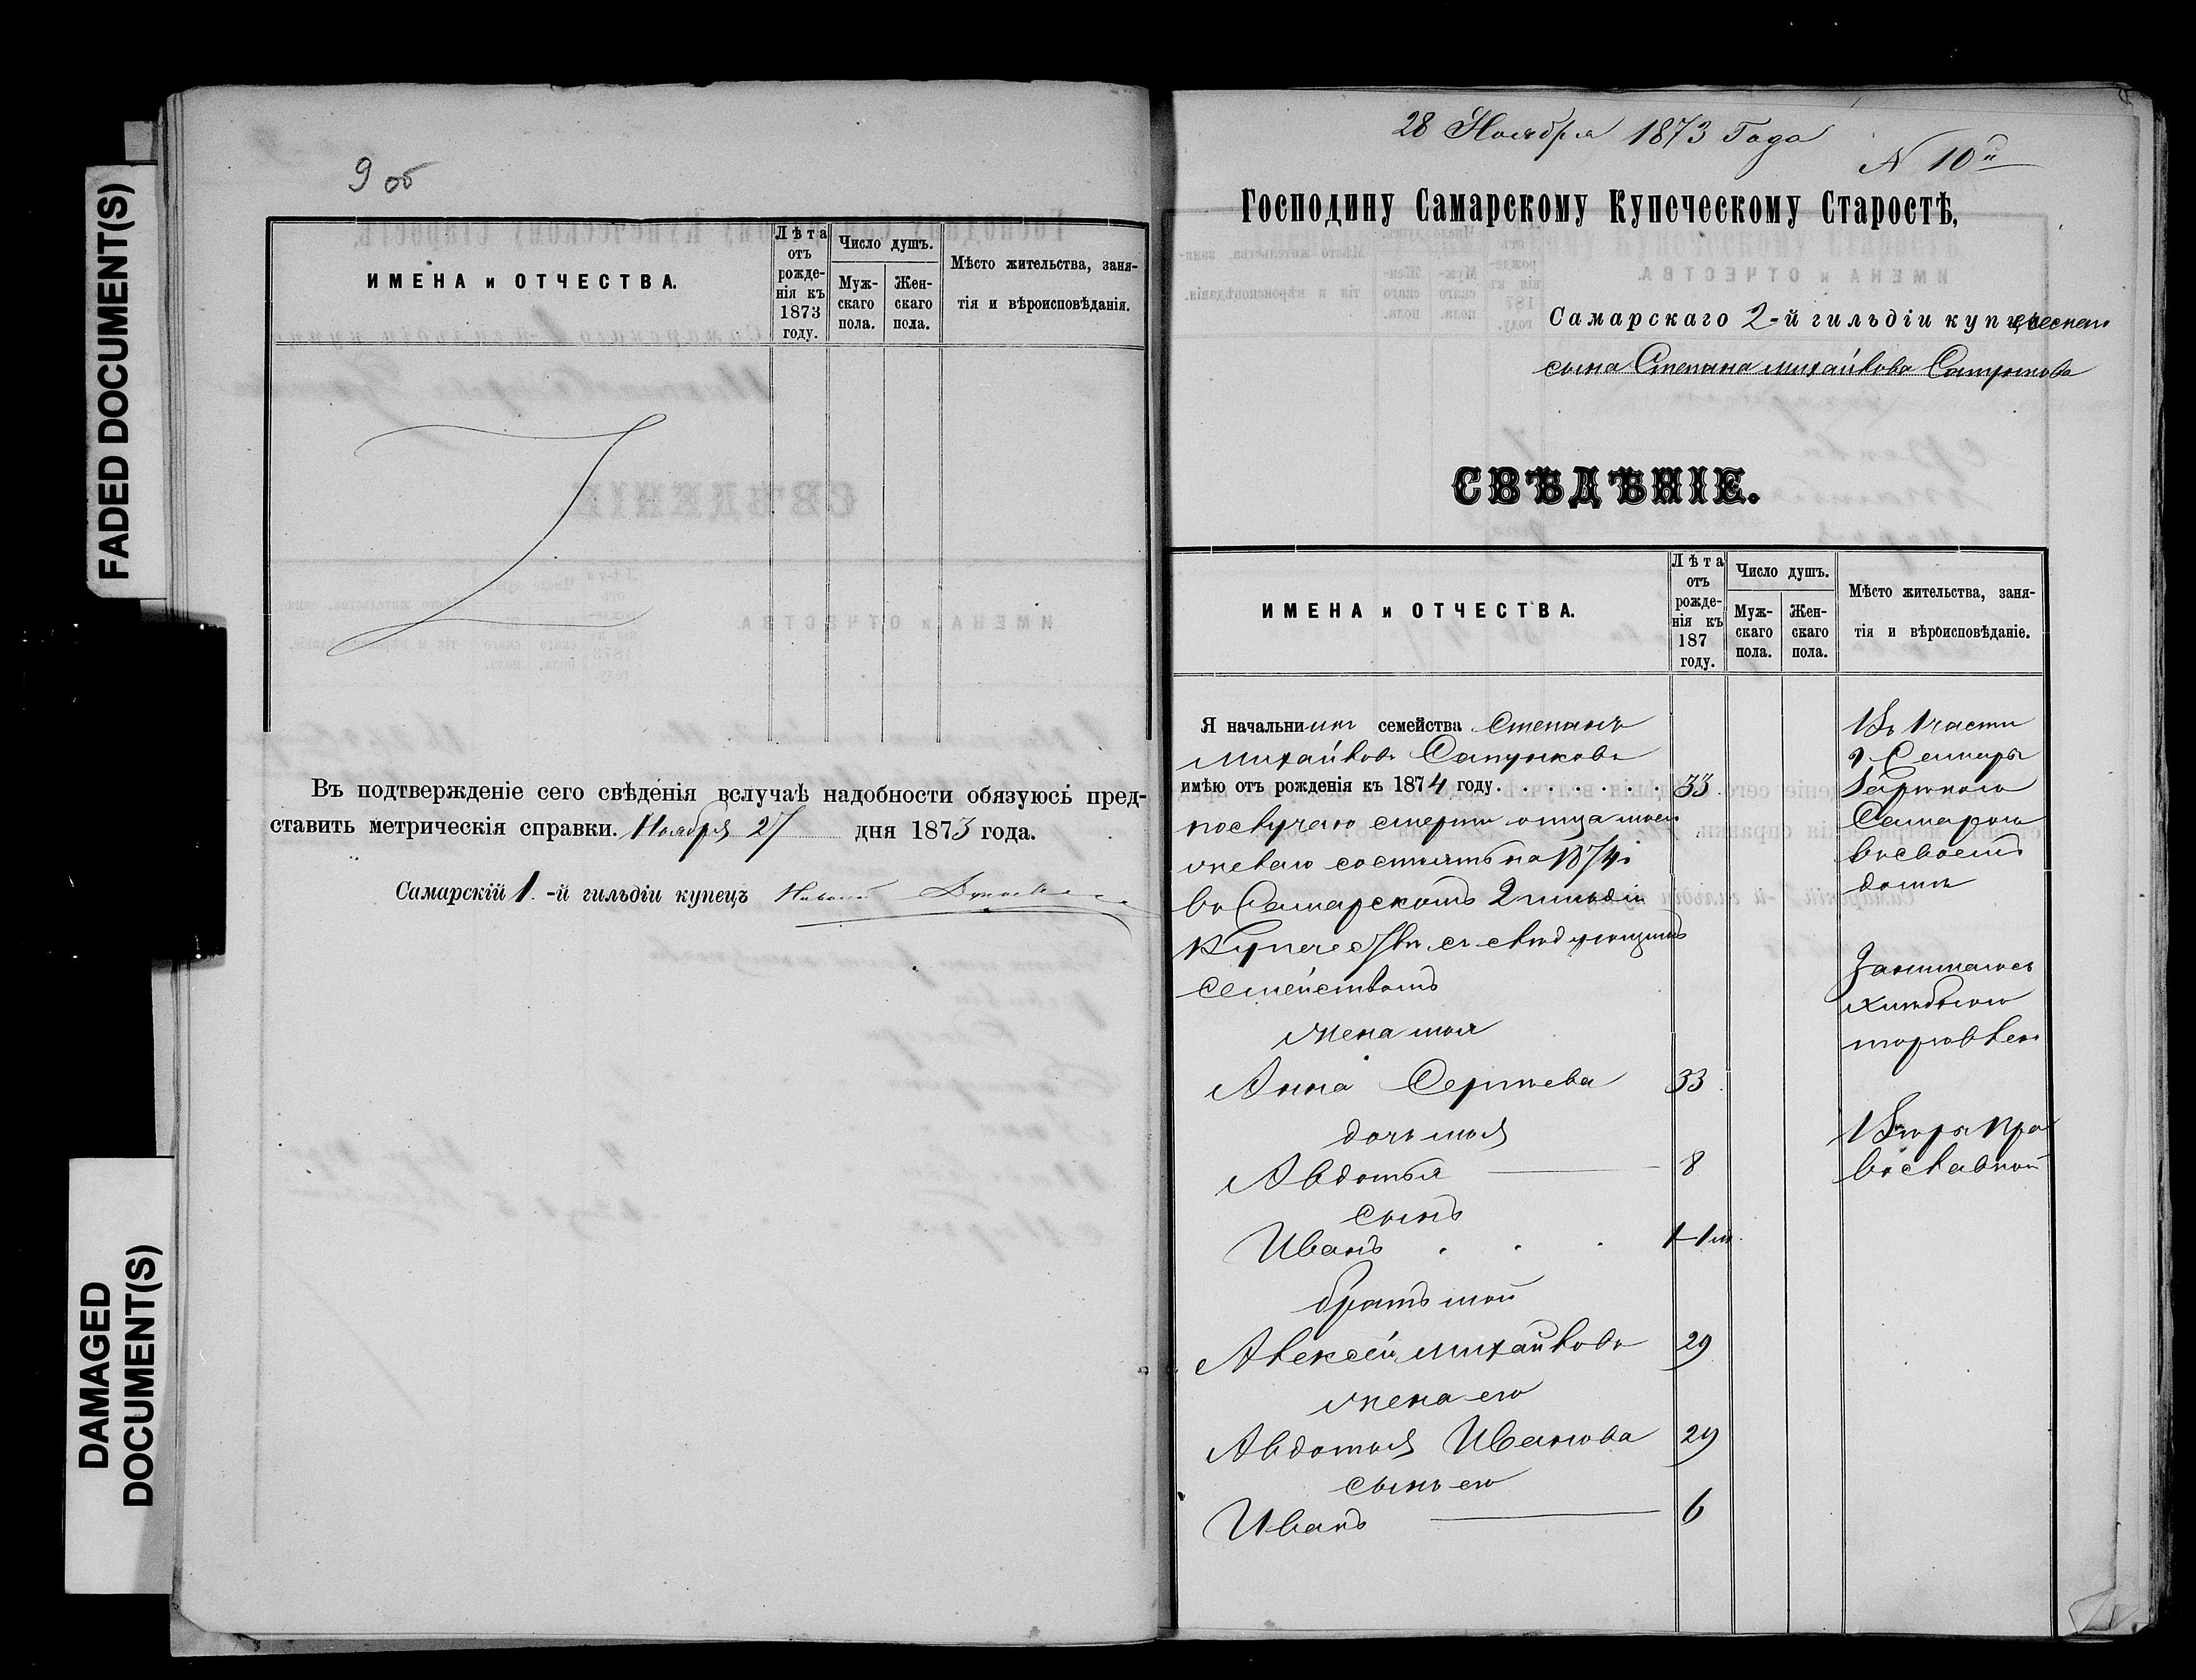 FADED DOCUMENT(S)
DAMAGED
DOCUMENT(S)
9 об
ИМЕНА и ОТЧЕСТВА.
Лѣта
отъ
рожде-
нія къ
1873
году.
Число душъ.
Муж-
скаго
пола.
Жен-
скаго
пола.
Мѣсто жительства, заня-
тія и вѣроисповѣданія.
Въ подтвержденіе сего свѣденія вслучаѣ надобности обязуюсь пред-
ставить метрическія справки. Ноября 27 дня 1873 года.
Самарскій 1.-й гильдіи купецъ
28 Ноября 1873 Года
N 10й
Господину Самарскому Купеческому Старостѣ,
Самарскаго 2-й гильдіи купеческаго
сына Степана Михайлова
СВѢДѢНІЕ.
ИМЕНА и ОТЧЕСТВА.
Лѣта
отъ
рожде-
нія къ
187
году.
Число душъ.
Муж-
скаго
пола.
Жен-
скаго
пола.
Мѣсто жительства, заня-
тія и вѣроисповѣданіе.
Я начальникъ семейства Степанъ
Михайловъ Сапунковъ
имѣю отъ рожденія къ 1874 году. . . . . . . . 33
послучаю смерти отца моего
желаю состоять на 1874г
въ Самарскомъ 2 гильдіи
Купечествѣ съ слѣдующимъ
Семействомъ
жена моя
Анна Сергѣева 33
дочь моя
Авдотья 8
сынъ
Иванъ . . . 1-1 м.
братъ мой
Алексѣй Михайловъ 29
жена его
Авдотья Иванова 29
сынъ его
Иванъ 6
Въ 1 части
г Самары
Самарою
въ своемъ
доме
Занимаюсь
хлѣбною
торговлею
Вѣры Пра
вославной